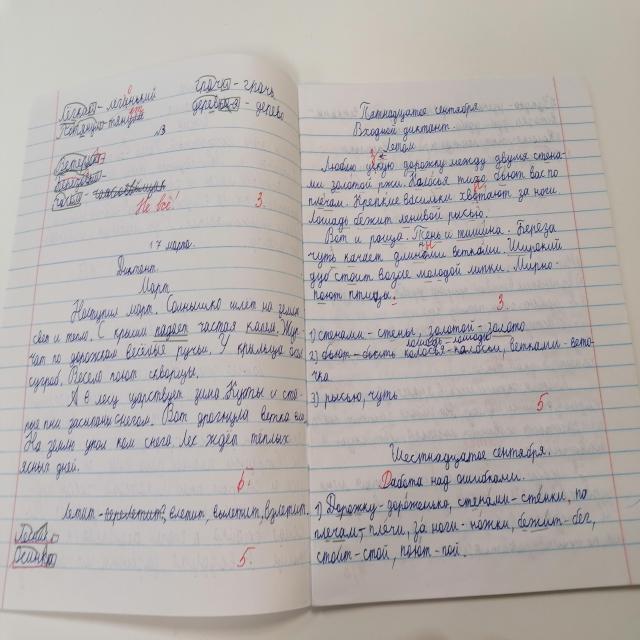 Лёгкий - лёгонький
грачи - грачь
Потянуло - тянут
деревья - дерево
№3
Не всё!
3.
17 марта.
Диктант.
Март.
Наступил март. Солнышко шлёт на землю
свет и тепло. С крыши падает частая капель. Жур
чат по дорожкам весёлые ручьи. У крыльца осел
сугроб. Весело поют скворцы.
А в лесу царствует зима. Кусты и ста
рые пни засыпаны снегом. Вот дрогнула ветка ели.
На землю упал ком снега. Лес ждёт тёплых
ясных дней.
5.
Летит - перелетит, влетит, вылетит, взлетит.
5.
Пятнадцатое сентября.
Входной диктант.
Летом
Люблю узкую дорожку между двумя стена-
ми золотой ржи. Колосья тихо бьют вас по
плечам. Крепкие васильки хватают за ноги.
Лошадь бежит ленивой рысью.
Вот и роща. Тень и тишина. Берёза
чуть качает длинными ветками. Широкий
дуб стоит возле молодой липки. Мирно
поют птицы.
3.
1) стенами - стены, золотой - золото
лошадь - лошади
2) бьют - бить колосья - колосьи, ветками - вето-
чка
3) рысью, чуть
5.
Шестнадцатое сентября.
Работа над ошибками.
1) Дорожку - дороженька, стенами - стенки, по
плечам - плечи, за ноги - ножки, бежит - бег,
стоит - стой, поют - пой.